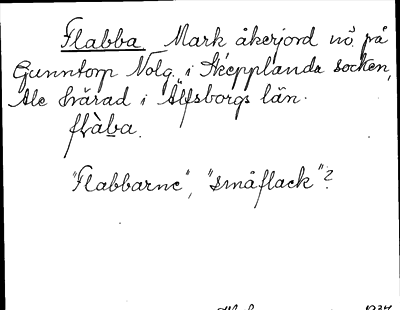 Flabba Mark åkerjord nö. på
Gunntorp Nolg. i Skepplanda socken,
Ale härad i Älfsborgs län.
flàba.
"Flabbarne", "småflack"?